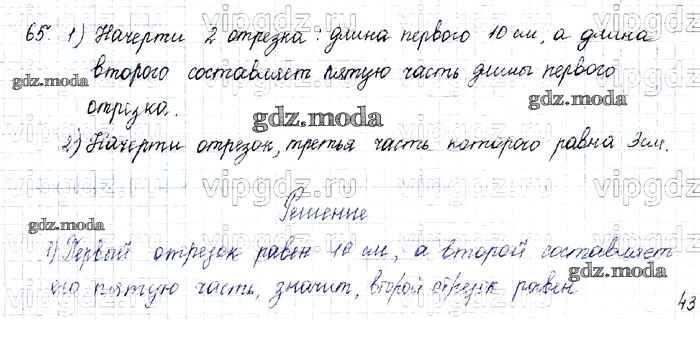 65. 1) Начерти 2 отрезка: длина первого 10 см, а длина
второго составляет пятую часть длины первого
отрезка.
2) Начерти отрезок, третья часть которого равна 3 см.
Решение
1) Первый отрезок равен 10 см, а второй составляет
его пятую часть, значит, второй отрезок равен
43
vipgdz.ru
gdz.moda